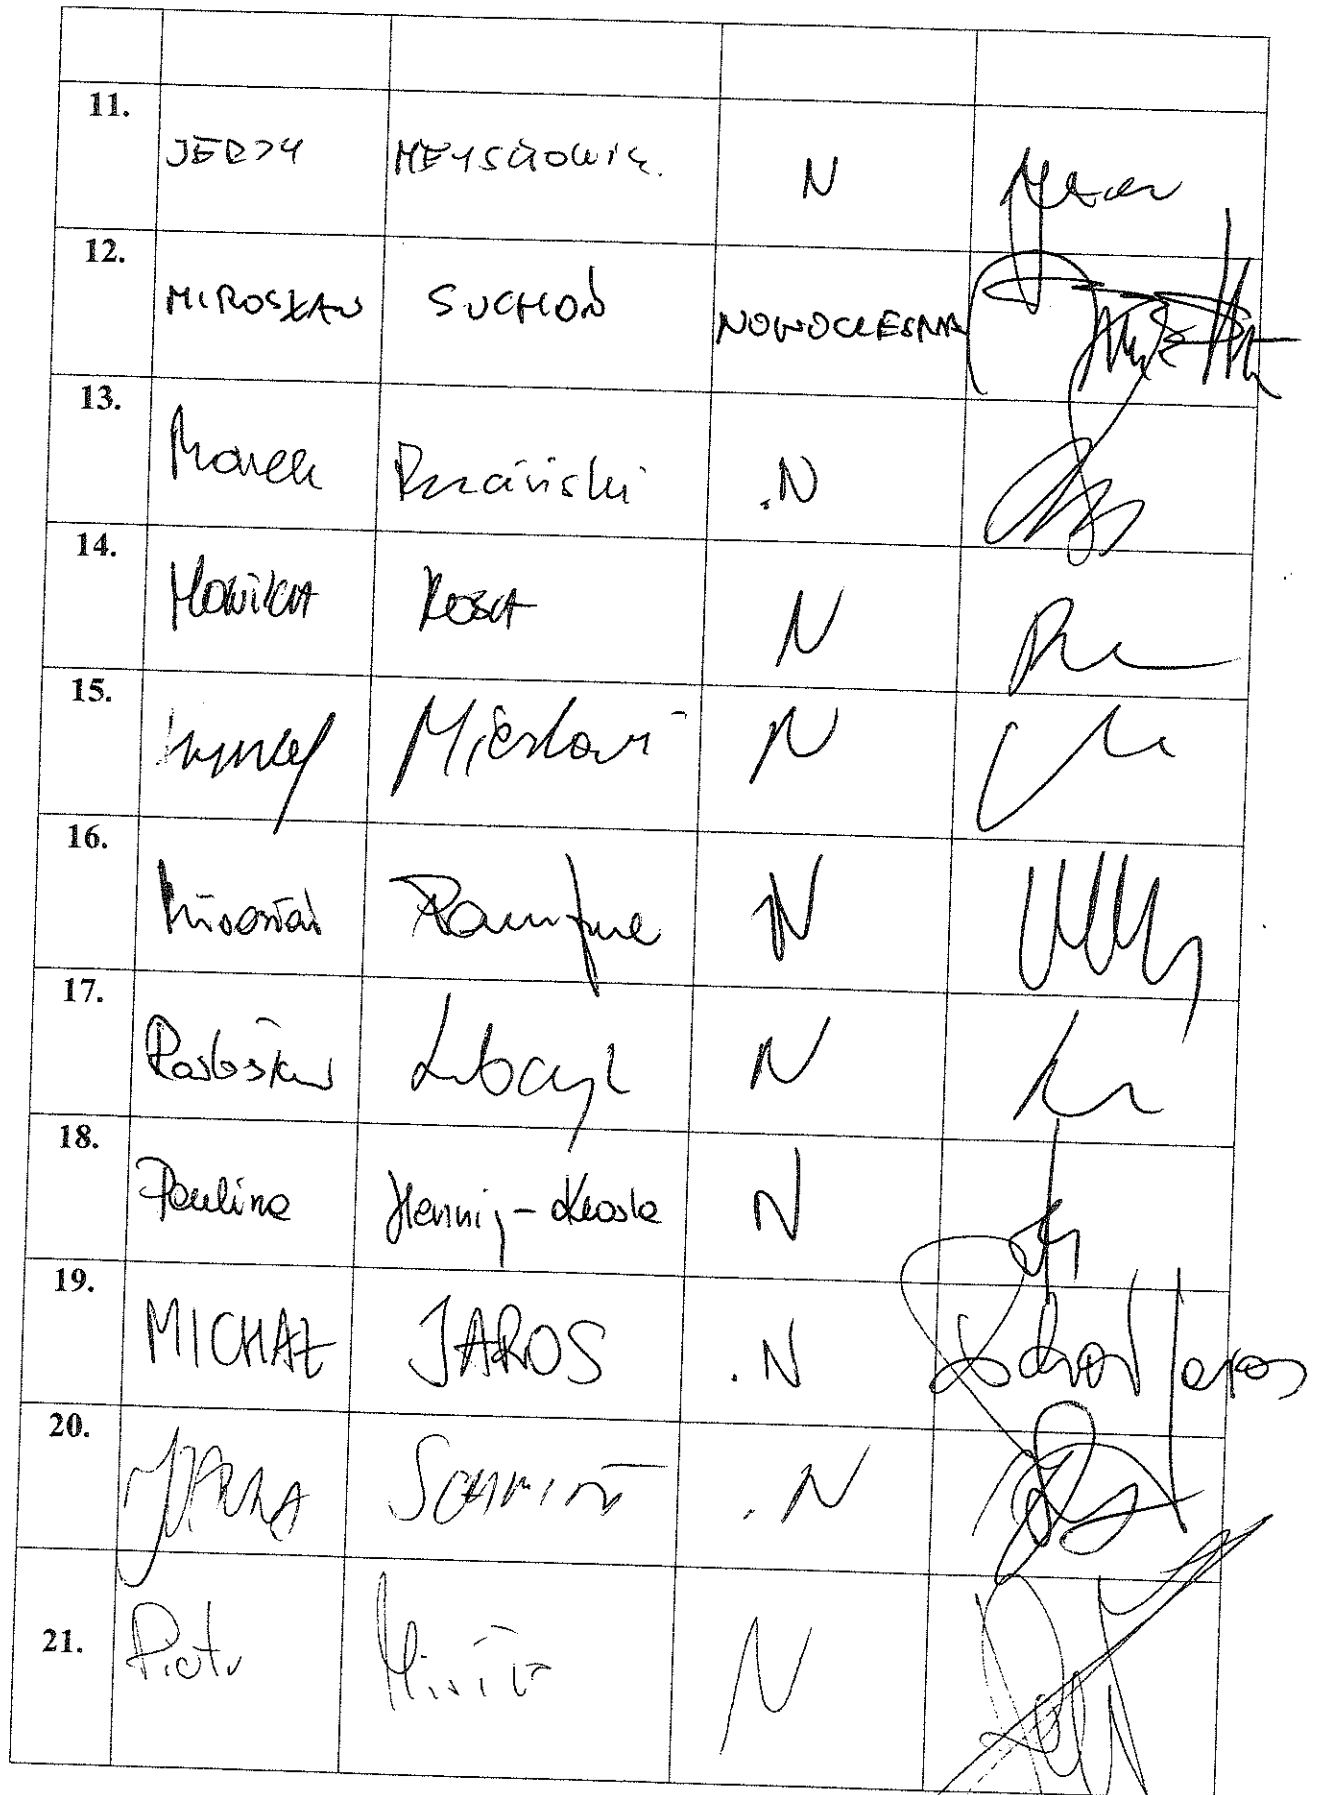 11. JERZY MEYSZTOWICZ N
12. MIROSŁAW SUCHOŃ NOWOCZESNA
13. Marek Ruciński .N
14. MONIKA ROSA N
15. Krzysztof Mieszkowski N
16. Mirosław Pampuch N
17. Radosław Lubczyk N
18. Paulina Hennig-Kloska N
19. MICHAŁ JAROS .N Michał Jaros
20. JOANNA SCHMIDT .N
21. Piotr Misiło N